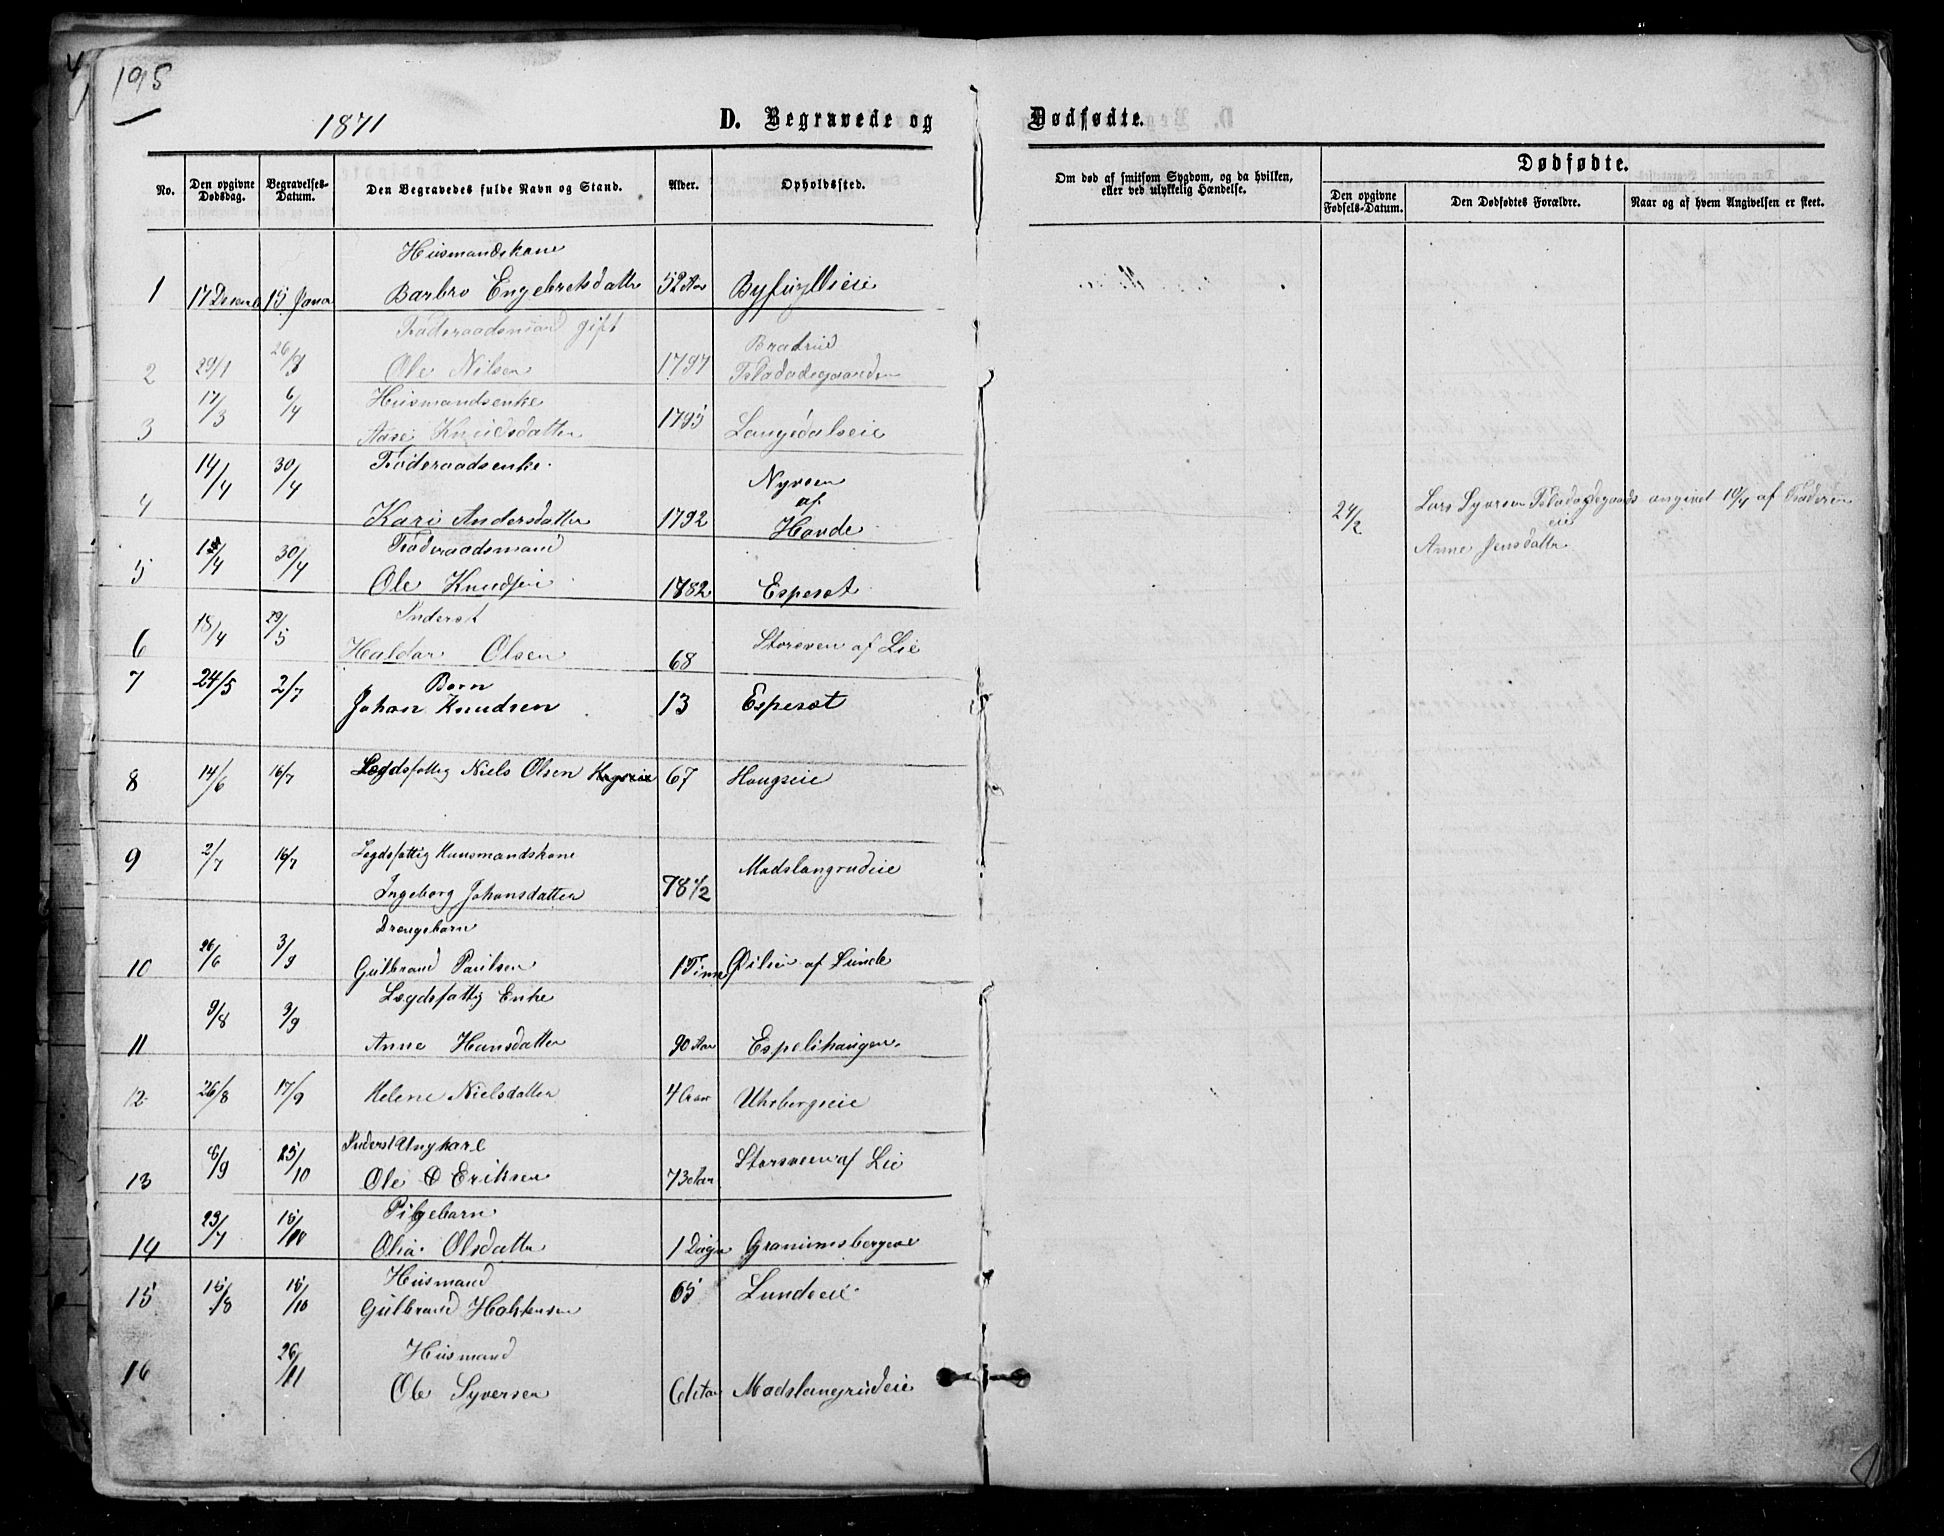 195
1871
D. Begravede og Dødfødte.
No.
Den opgivne Dødsdag.
Begravelses-Datum.
Den Begravedes fulde Navn og Stand.
Alder.
Opholdssted.
Om død af smitsom Sygdom, og da hvilken, eller ved ulykkelig Hændelse.
Dødfødte.
Den opgivne Fødsels-Datum.
Den Dødfødtes Forældre.
Naar og af hvem Angivelsen er skeet.
Husmandskone
1 17 Decemb 15 Januar Barbro Engebretsdatter 52 Aar
Føderaadsmand gift Bratrud
2 29/1 26/3 Ole Nilsen 1797
17/3 6/4 Husmandsenke
3 Aase Knudsdatter 1795 Langedalseie
14/4 30/4 Føderaadsenke Nyveen
af
4 Kari Andersdatter 1792 Hovde
30/4 Føderaadsmand
5 Ole Knudsen 1782 Espeset
Inderst
6 18/4 29/5 Haldor Olsen 68 Storeven af Lie
7 24/5 2/7 Barn
Johan Knudsen 13 Espeset
8 14/6 16/7 Lægdsfattig Niels Olsen 67 Haugseie
9 2/7 16/7 Legdsfattig Huusmandskone
Ingeborg Johansdatter 78 1/2 Madslangrudeie
Drengebarn
10 26/6 3/9 Gulbrand Paulsen 1 Time af Lunde
9/8 3/9 Lægdsfattig Enke
11 Anne Hansdatter 90 Aar Espelihaugen
12 26/8 17/9 Helene Nielsdatter 4 Aar
6/9 25/10 Inderst Ungkarl
13 Ole Eriksen 73 Aar Storeveen af Lie
23/7 15/10 Pigebarn
14 Olia Olsdatter 1 Dag
15 15/8 15/10 Husmand
Gulbrand Halstensen 65 Lundseie
26/11 Husmand
16 Ole Syversen Madslangrudeie
24/2
Lars Syversen angivet 10/4 af Faderen
eie
Anne Jensdatter